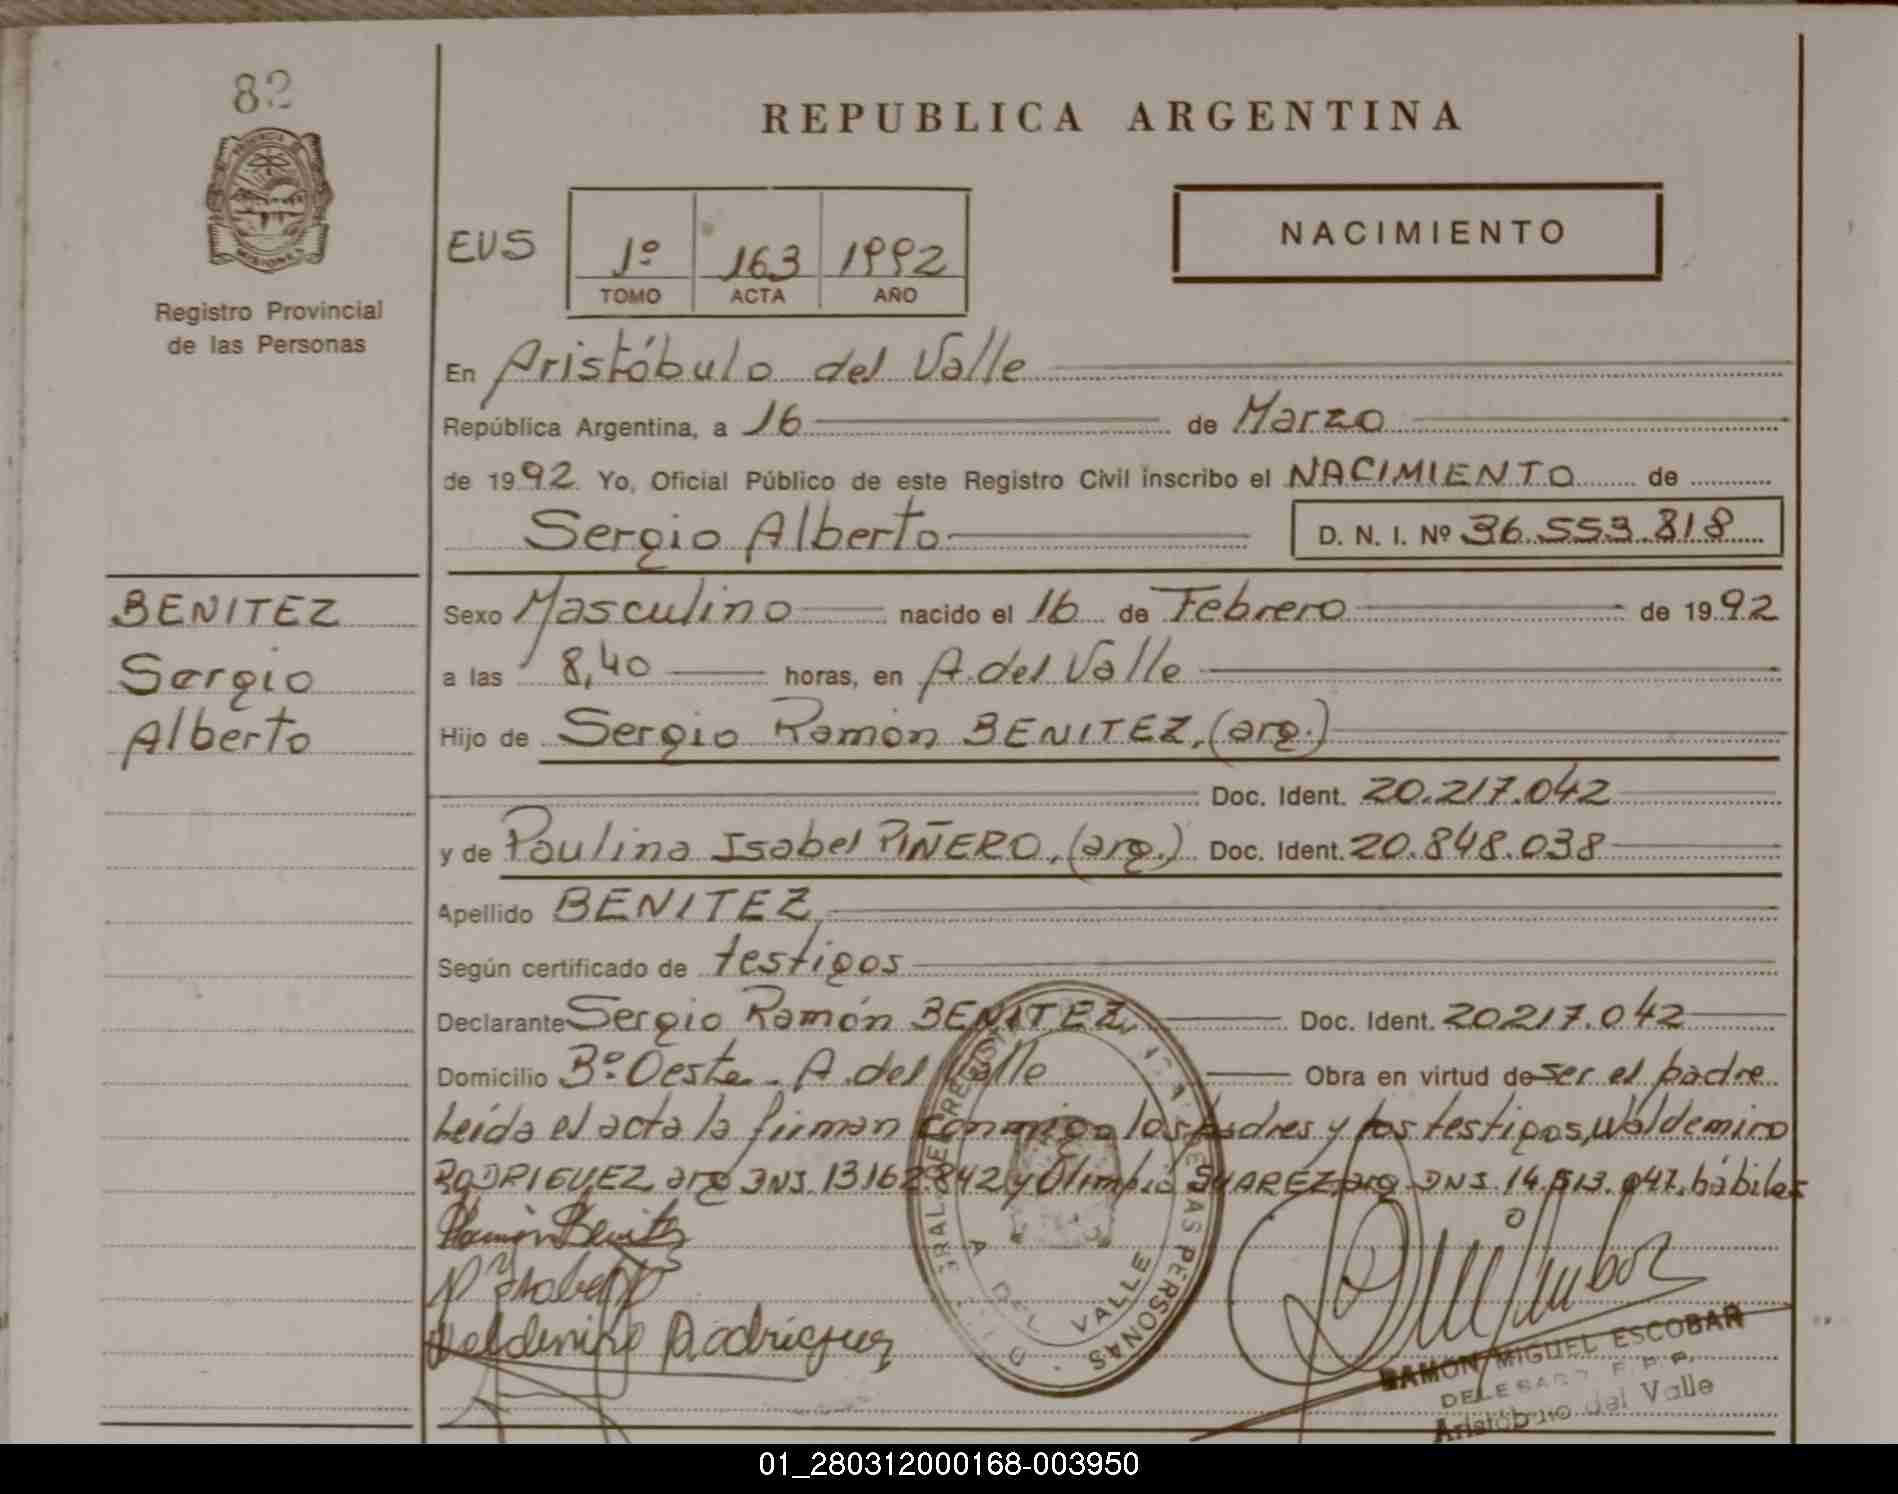 82
REPUBLICA ARGENTINA
PROVINCIA DE
MISIONES
Registro Provincial
de las Personas
EUS
1º 163 1992
TOMO ACTA AÑO
NACIMIENTO
En Aristóbulo del Valle
República Argentina, a 16 de Marzo
de 1992. Yo, Oficial Público de este Registro Civil inscribo el NACIMIENTO de
Sergio Alberto D. N. I. Nº 36.553.818
BENITEZ
Sergio
Alberto
Sexo Masculino nacido el 16 de Febrero de 1992
a las 8,40 horas, en A. del Valle
Hijo de Sergio Ramón BENITEZ, (arg.)
Doc. Ident. 20.217.042
y de Paulina Isabel PIÑERO, (arg.) Doc. Ident. 20.848.038
Apellido BENITEZ
Según certificado de testigos
Declarante Sergio Ramón BENITEZ, Doc. Ident. 20217.042
Domicilio 3º Oeste - A. del Valle Obra en virtud de ser el padre
Leída el acta la firman conmigo los padres y los testigos, Waldemiro
RODRIGUEZ, arg DNI. 13162842 y Olimpio SUAREZ, arg. DNI. 14.513.047, hábiles
Ramón Benitez
Waldemiro Rodriguez
DE LAS PERSONAS
A. DEL VALLE
RAMON MIGUEL ESCOBAR
Aristóbulo del Valle
01_280312000168-003950